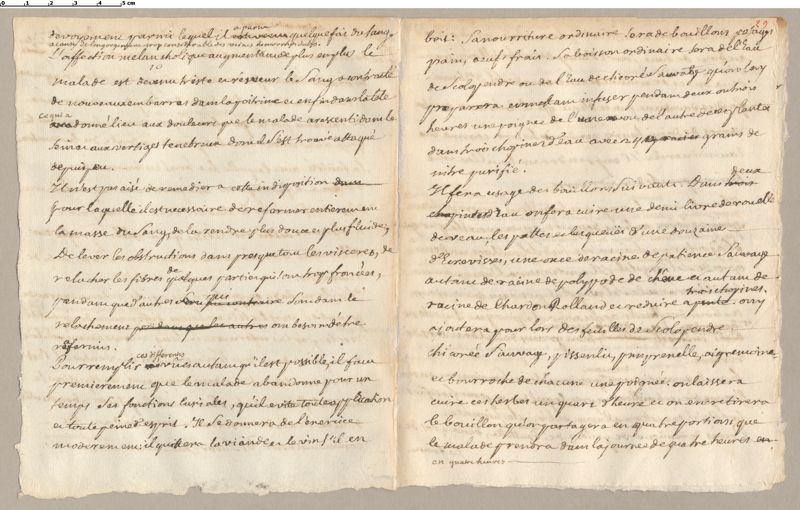 devoyement parmi lequel il a paru quelque fois du sang
a cause de l'engorgement trop considerable des veines hemorrhoidales.
L'affection melancholique augmentant de plus en plus le
malade est devenu triste et resveur le sang a contracté
de nouveaux embarras dans la poitrine et enfin dans la tete
ce qui a donné lieu aux douleurs que le malade a ressenti dans le
sein et aux vertiges tenebreux dont il s'est trouvé attaqué
depuis peu.
Il n'est pas aisé de remedier a cette indisposition
pour laquelle il est necessaire de reformer entierement
la masse du sang, de la rendre plus douce et plus fluide,
De lever les obstructions dans presque tous les visceres, de
relacher les fibres de quelques parties qui sont trop froncées,
pendant que d'autres qui sont dans le
relachement ont besoin d'etre
raffermis.
Pour remplir ces differentes vues autant qu'il est possible, il faut
premierement que le malade abandonne pour un
temps ses fonctions curiales, qu'il evite toute application
et toute peine d'esprit. Il se donnera de l'exercice
moderement, il quittera la viande et le vin s'il en
29
boit: Sa nourriture ordinaire sera de bouillons, potages
pain, œufs frais. Sa boisson ordinaire sera de l'eau
de scolopendre ou de l'eau de chicorée sauvage qu'on luy
preparera en mettant infuser pendant deux ou trois
heures une poignée de l'une ou de l'autre de ces plantes
dans trois chopines d'eau avec grains de
nitre purifié.
Il fera usage des bouillons suivants. Dans deux
d'eau on fera cuire une demi livre de rouelle
de veau, les pattes et les queües d'une douzaine
d'Ecrevisses, une once de racine de patience sauvage
autant de racine de polypode de chêne et autant de
racine de Chardon Rolland et reduire a trois chopines. on y
ajoutera pour lors des feuilles de Scolopendre
chicorée sauvage, pissenlit, pimprenelle, aigremoine
et bourroche de chacune une poignée. on laissera
cuire ces herbes un quart d'heure et on en retirera
le bouillon qu'on partagera en quatre portions que
le malade prendra dans la journée de quatre heures en
en quatre heures